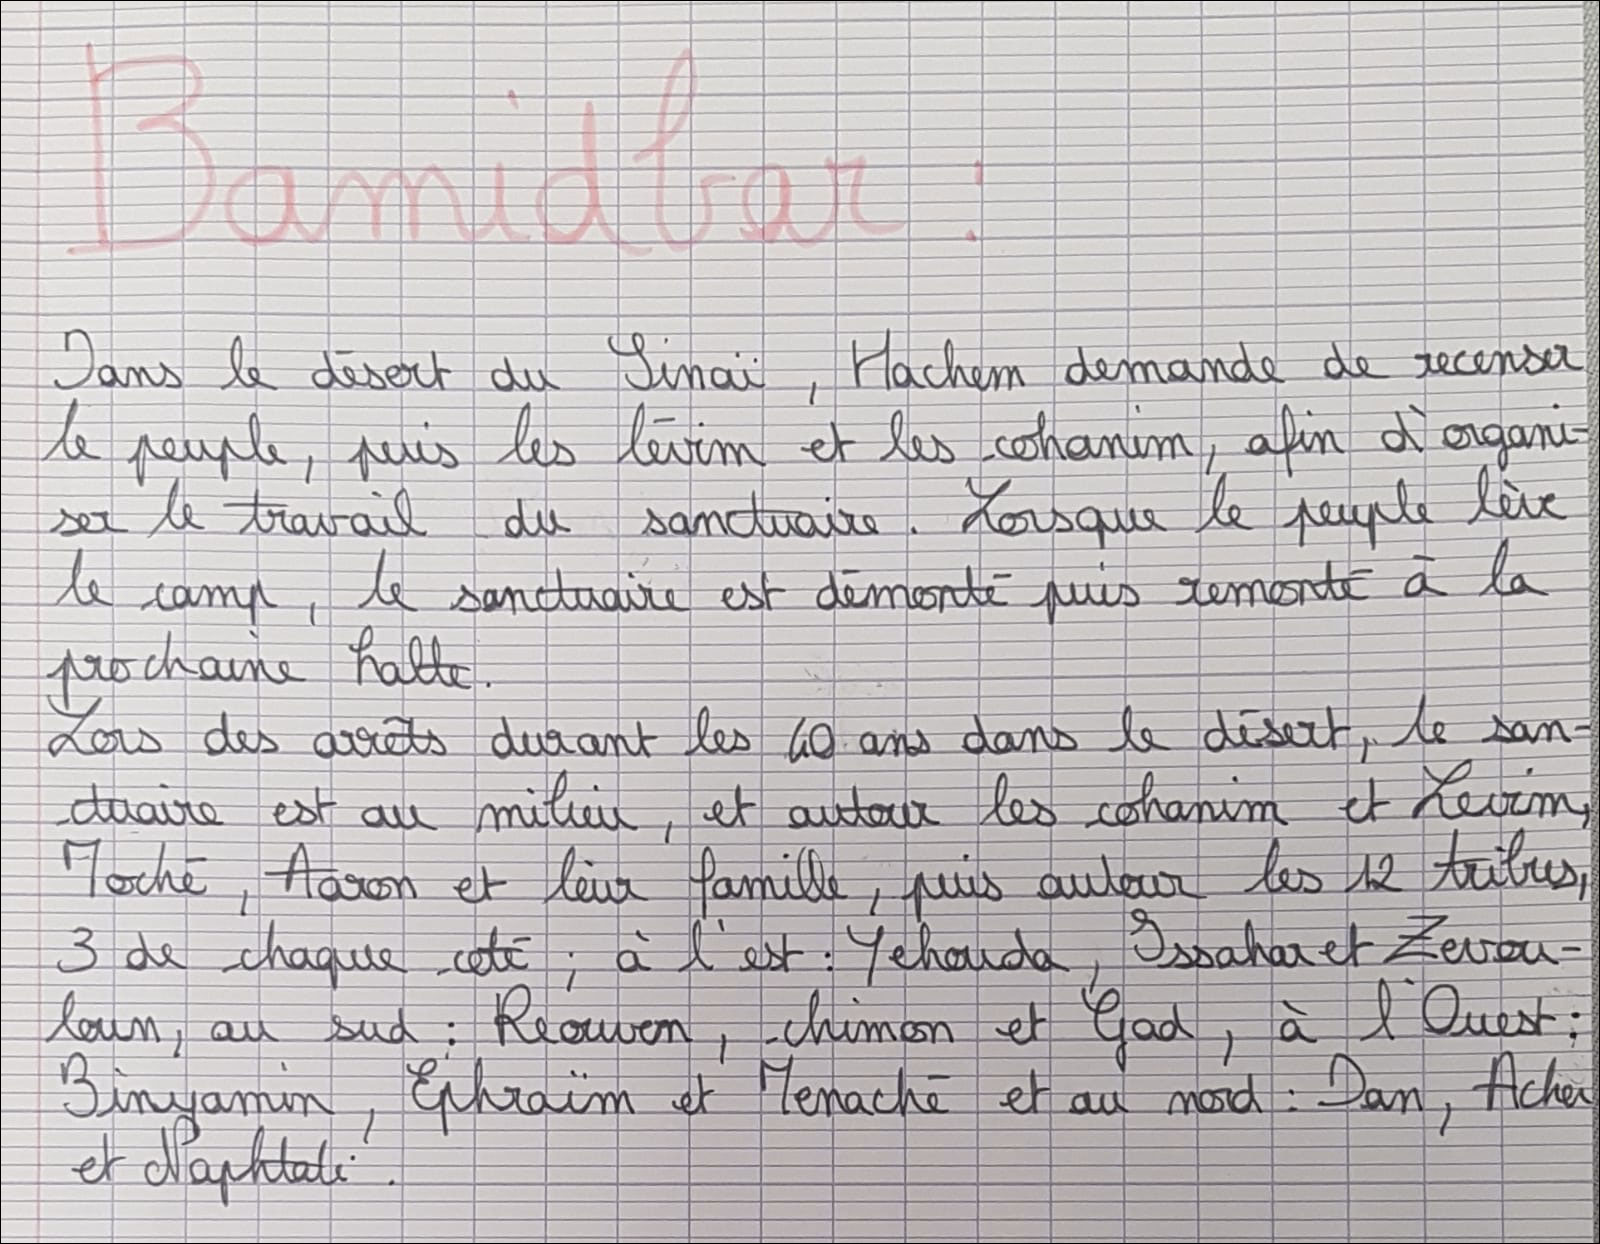 Bamidbar :
Dans le désert du Sinaï, Hachem demande de recenser
le peuple, puis les lévim et les cohanim, afin d'organi-
ser le travail du sanctuaire. Lorsque le peuple lève
le camp, le sanctuaire est démonté puis remonté à la
prochaine halte.
Lors des arrêts durant les 40 ans dans le désert, le san-
ctuaire est au milieu, et autour les cohanim et Levim,
Moché, Aaron et leur famille, puis autour les 12 tribus,
3 de chaque coté ; à l'est : Yehouda, Issahar et Zevou-
loun, au sud : Reouven, chimon et Gad, à l'Ouest :
Binyamin, Ephraïm et Menaché et au nord : Dan, Acher
et Naphtali.